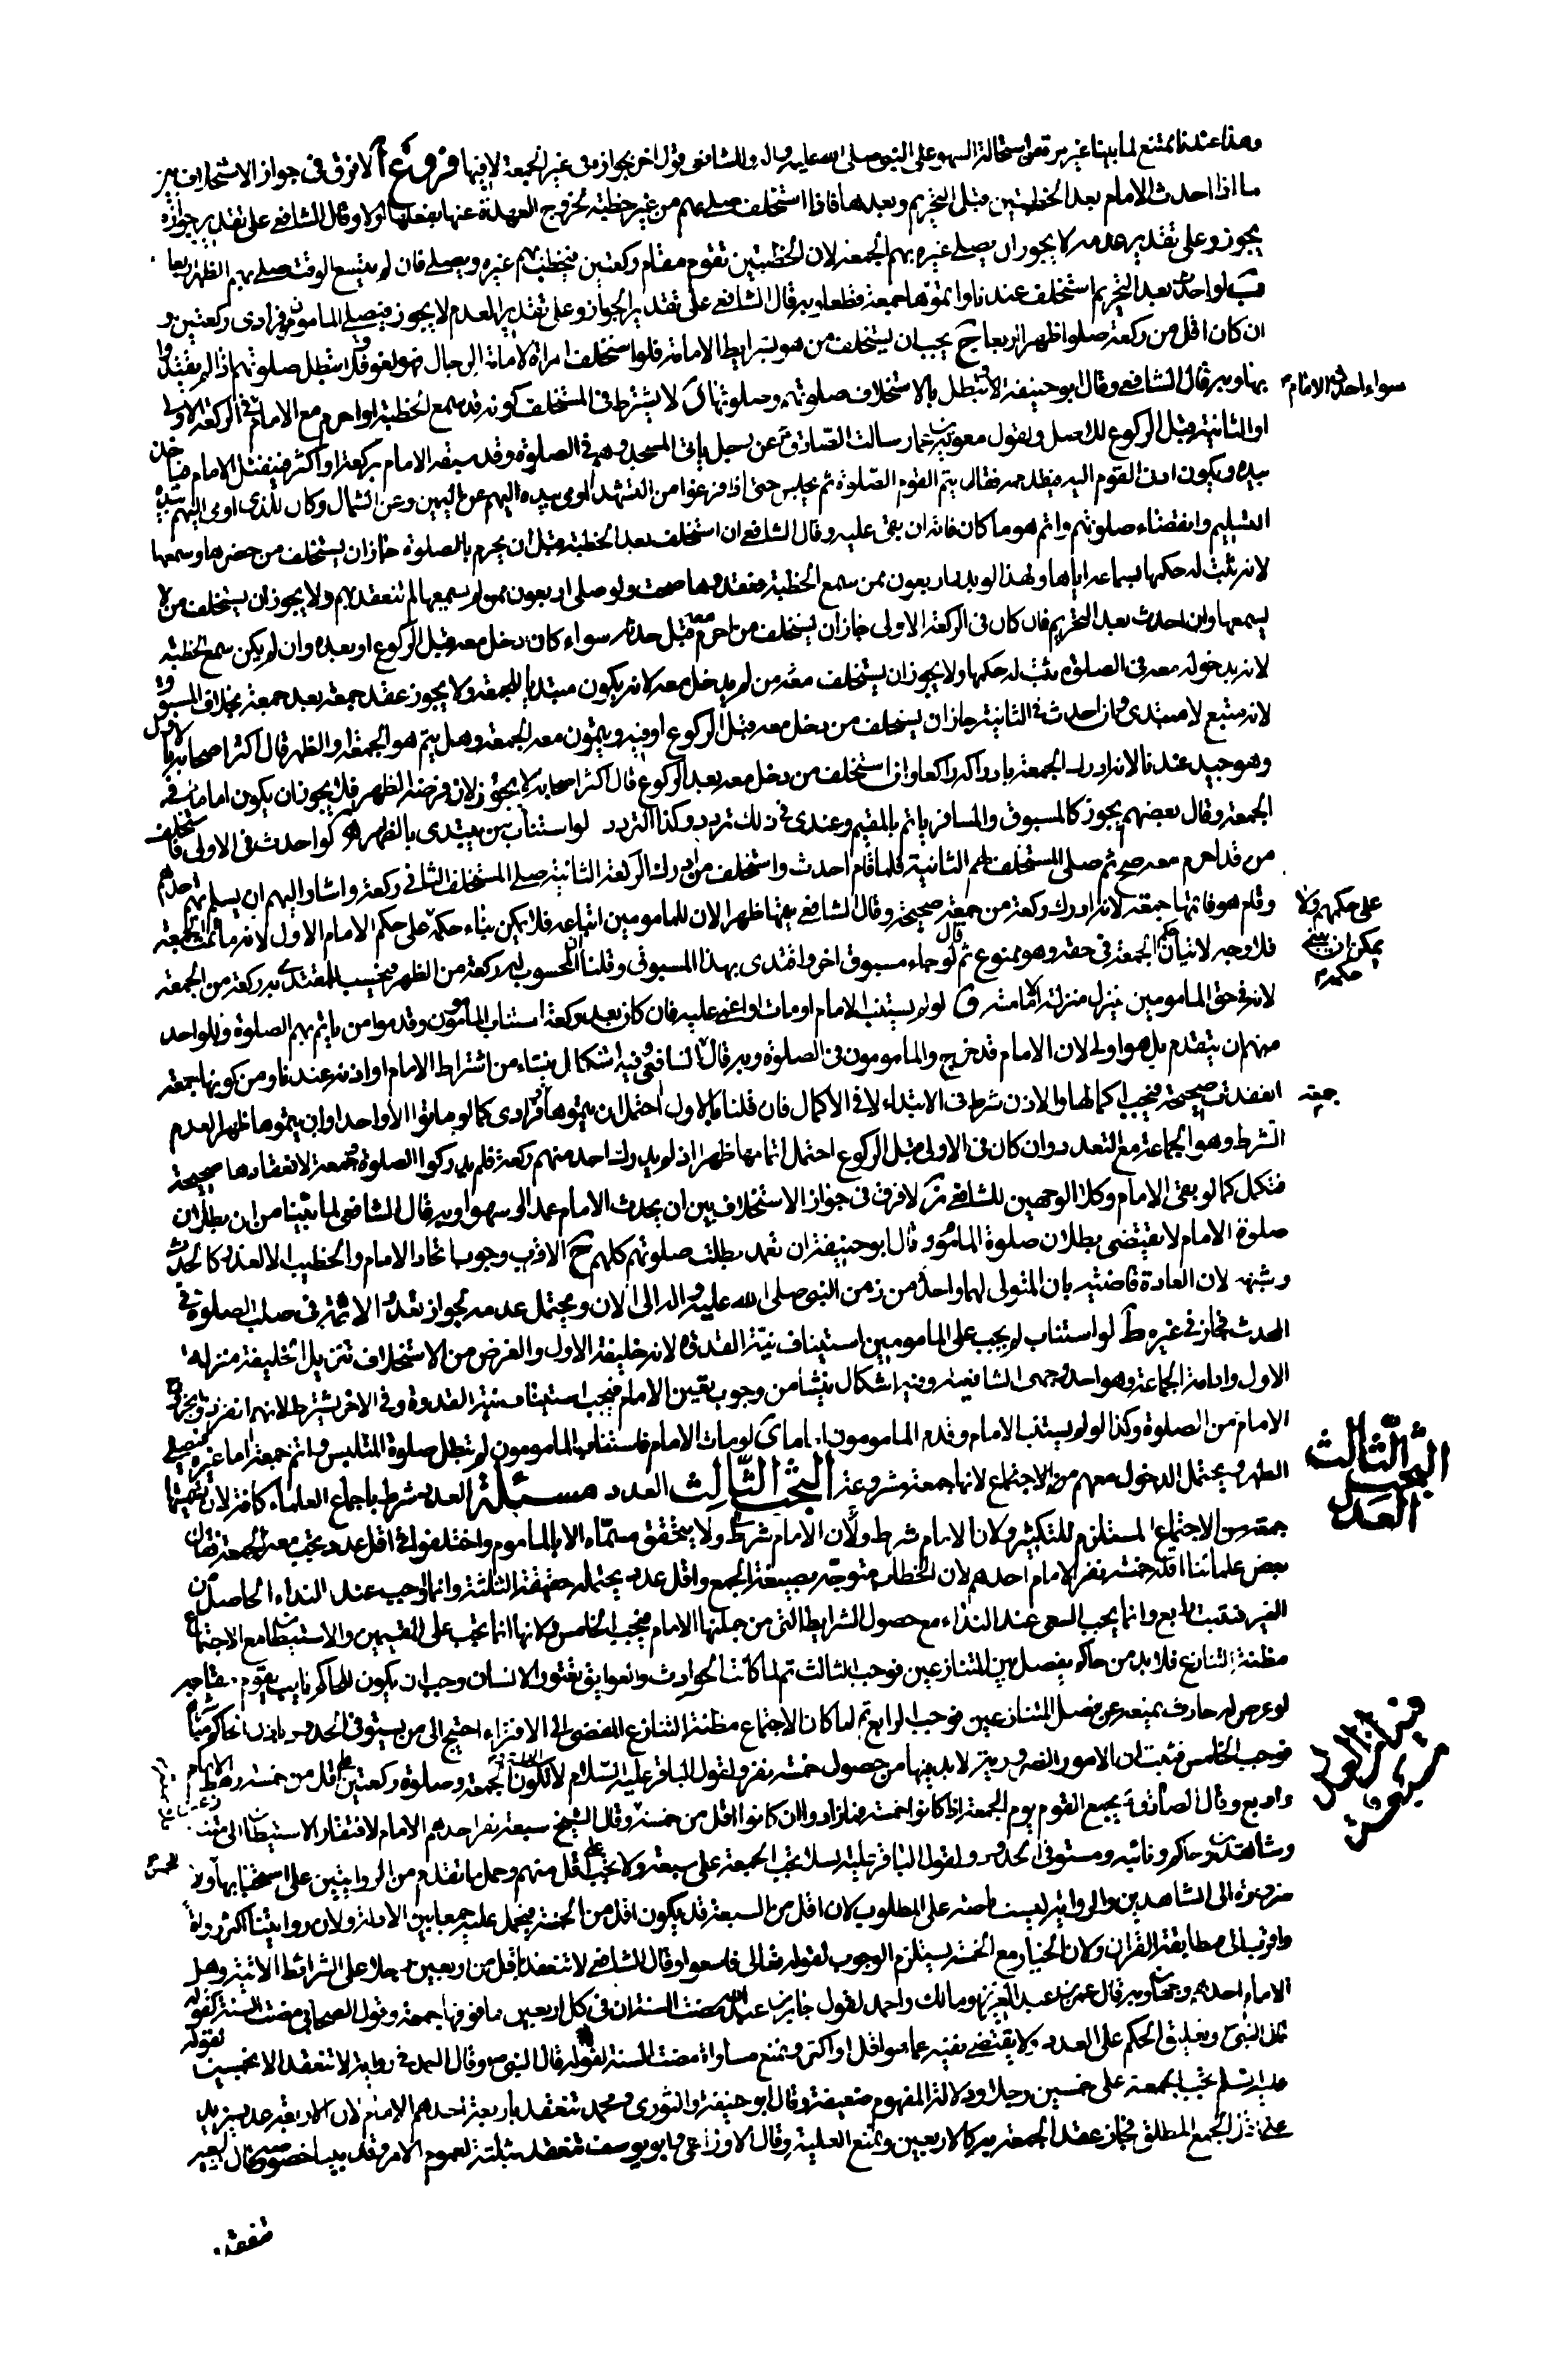 وهذا عندنا ممتنع لما بينا غير مرة من استحالة السهو على النبي صلى الله عليه وآله وللشافعي قول اخر بجوازه في غير الجمعة لا فيها فروع آ لا فرق في جواز الاستخلاف بين
ما اذا احدث الامام بعد الخطبتين قبل التحريم وبعدها فاذا استخلف صلى بهم من غير خطبة لخروج العهدة عنها بفعلها اولا وقال الشافعي على تقدير جوازه
يجوز وعلى تقدير عدمه لا يجوز ان يصلي غيره بهم الجمعة لان الخطبتين تقوم مقام ركعتين فيخطب بهم غيره ويصلي فان لم يتسع الوقت صلى بهم الظهر اربعا
ب لو احدث بعد التحريم استخلف عندنا واتموها جمعة قطعا وبه قال الشافعي على تقدير الجواز وعلى تقدير العدم لا يجوز فيصلي المأمون فرادى ركعتين و
ان كان اقل من ركعة صلوا ظهرا اربعا ج يجب ان يستخلف من هو بشرايط الامامة فلو استخلف امراة لامامة الرجال فهو لغو ولا تبطل صلوتهم اذا لم يقتدوا
بها وبه قال الشافعي وقال ابو حنيفة تبطل بالاستخلاف صلوتهم وصلوتها د لا يشترط في المستخلف كونه قد سمع الخطبة او احرم مع الامام في الركعة الاولى
سواء احدث الامام
او الثانية قبل الركوع للاصل ولقول معوية بن عمار سالت الصادق ع عن رجل ياتي المسجد وهم في الصلوة وقد سبقه الامام بركعة او اكثر فيفتل الامام فياخذ
بيده ويكون ادنى القوم اليه فيقدمه فقال يتم القوم الصلوة ثم يجلس حتى اذا فرغوا من التشهد اومى بيده اليهم عن اليمين وعن الشمال وكان الذي اومى اليهم بيده
التسليم وانقضاء صلوتهم واتم هو ما كان فاته ان بقي عليه وقال الشافعي ان استخلف بعد الخطبة قبل ان يحرم بالصلوة جاز ان يستخلف من حضرها وسمعها
لانه ثبت له حكمها بسماعه اياها ولهذا لو بدر اربعون ممن سمع الخطبة فعقدوها صحت ولو صلى اربعون ممن لم يسمعها لم تنعقد بهم ولا يجوز ان يستخلف من لا
يسمعها وان احدث بعد التحريم فان كان في الركعة الاولى جاز ان يستخلف من احرم معه قبل حدثه سواء كان دخل معه قبل الركوع او بعده وان لم يكن سمع الخطبة
لانه بدخوله معه في الصلوة ثبت له حكمها ولا يجوز ان يستخلف من لم يدخل معه لانه يكون مبتديا للجمعة ولا يجوز عقد جمعة بعد جمعة بخلاف المسبوق
لانه متبع لا مبتدى وان احدث في الثانية جاز ان يستخلف من دخل معه قبل الركوع او فيه ويتمون معه الجمعة وهل يتم هو الجمعة او الظهر قال اكثر اصحابه بالاول
وهو جيد عندنا لانه ادرك الجمعة بادراكه راكعا وان استخلف من دخل معه بعد الركوع قال اكثر اصحابه لا يجوز لان فرضه الظهر فلا يجوز ان يكون اماما في
الجمعة وقال بعضهم يجوز كالمسبوق والمسافر ياتم بالمقيم وعندي في ذلك تردد وكذا التردد لو استناب من يبتدى بالظهر ه لو احدث في الاولى فاستخلف
من قد احرم معه صح ثم صلى المستخلف بهم الثانية فلما قام احدث واستخلف من ادرك الركعة الثانية صلى المستخلف الثاني ركعة واشار اليهم ان يسلم بهم احدهم
وقام هو فاتمها جمعة لانه ادرك ركعة من جمعة صحيحة وقال الشافعي يتمها ظهرا لان للمامومين اتباعه فلا يمكن بناء حكمه على حكم الامام الاول لانه ما تمت الجمعة
على حكمهم ولا
يمكن ان يبنى
حكمه
فلا وجه لاثبات حكم الجمعة في حقه وهو ممنوع ثم قال لو جاء مسبوق اخر واقتدى بهذا المسبوق وقلنا المحسوب له ركعة من الظهر فيحسب للمقتدى به ركعة من الجمعة
لانه في حق المامومين ينزل منزلة امامته و لو لم يستنب الامام او مات او اغمي عليه فان كان بعد ركعة استناب المأمون وقدموا من ياتم بهم الصلوة وللواحد
منهم ان يتقدم بل هو اولى لان الامام قد خرج والمامومون في الصلوة وبه قال الشافعي وفيه اشكال ينشاء من اشتراط الامام او اذنه عندنا ومن كونها جمعة
انعقدت صحيحة فيجب اكمالها والاذن شرط في الابتداء لا في الاكمال فان قلنا بالاول احتمل ان يتموها فرادى كما لو ماتوا الا واحدا وان يتموها ظهرا لعدم
جمعة
الشرط وهو الجماعة مع التعدد وان كان في الاولى قبل الركوع احتمل اتمامها ظهرا اذ لم يدرك احد منهم ركعة فلم يدركوا الصلوة وجمعة لانعقادها صحيحة
فتكمل كما لو بقي الامام وكلا الوجهين للشافعي ز لا فرق في جواز الاستخلاف بين ان يحدث الامام عمدا او سهوا وبه قال الشافعي لما بينا من ان بطلان
صلوة الامام لا يقتضي بطلان صلوة الماموم وقال ابو حنيفة ان تعمد بطلت صلوتهم كلهم ح الاقرب وجوب اتحاد الامام والخطيب الا لعذر كالحدث
وشبهه لان العادة قاضية بان المتولي لهما واحد من زمن النبي صلى الله عليه واله الى الان ويحتمل عدمه لجواز تعدد الائمة في صلب الصلوة في
الحدث فجاز في غيره ط لو استناب لم يجب على المامومين استيناف نية القدوة لانه خليفة الاول والغرض من الاستخلاف تنزيل الخليفة منزلة
الاول وادامة الجماعة وهو احد وجهي الشافعية وفيه اشكال ينشأ من وجوب تعيين الامام فيجب استيناف نية القدوة وفي الاخر يشترط لانهم انفردوا بخروج
الامام من الصلوة وكذا لو لم يستنب الامام وقدم المامومون اماما ى لو مات الامام فاستناب المامومون لم تبطل صلوة المتلبس واتم جمعة اما غيره فيصلي
الظهر ويحتمل الدخول معهم لانها جمعة مشروعة البحث الثالث العدد مسئلة العدد شرط باجماع العلماء كافة لان تسميتها
البحث الثالث
العدد
جمعة من الاجتماع المستلزم للتكثير ولان الامام شرط ولا يتحقق مسماه الا بالماموم واختلفوا في اقل عدد يجب معه الجمعة فقال
بعض علمائنا اقله خمسة نفر الامام احدهم لان الخطاب متوجه بصيغة الجمع واقل عدد يحتمله حقيقة الثلثة وانما اوجب عند النداء الحاصل من
الغير فيثبت الرابع وانما يجب السعي عند النداء مع حصول الشرايط التي من جملتها الامام فيجب الخامس ولانها انما تجب على المقيمين والاستيطان مع الاجتماع
مظنة التنازع فلا بد من حاكم يفصل بين المتنازعين فوجب الثالث ثم لما كانت الحوادث والعوايق تعتور الانسان وجب ان يكون للحاكم نايب يقوم مقامه
لو عرض له حادث يمنعه عن فصل المتنازعين فوجب الرابع ثم لما كان الاجتماع مظنة التنازع المفضي الى الافتراء احتيج الى من يستوفي الحدود باذن الحاكم
فوجب الخامس فثبت ان الامور الضرورية لابد فيها من حصول خمسة نفر ولقول الباقر عليه السلام لا تكون الجمعة وصلوة ركعتين على اقل من خمسة رهط الامام
واربع وقال الصادق ع يجمع القوم يوم الجمعة اذا كانوا خمسة فما زادوا وان كانوا اقل من خمسة وقال الشيخ سبعة نفر احدهم الامام لافتقار الاستيطان الى
وشاهدين وحاكم ونائبه ومستوفي الحدود ولقول الباقر عليه السلام تجب الجمعة على سبعة ولا تجب على اقل منهم وحمل ما تقدم من الروايتين على استحبابها ولا
ضرورة الى الشاهدين والرواية ليست ناصة على المطلوب لان اقل من السبعة قد يكون اقل من الخمسة فيحمل عليه جمعا بين الادلة ولان روايتنا اكثر رواة
واقرب الى مطابقة القران ولان الخيار مع الخمسة يستلزم الوجوب لقوله تعالى فاسعوا وقال الشافعي لا تنعقد باقل من اربعين رجلا على الشرائط الاتية وهل
الامام احدهم وجهان وبه قال عمر بن عبد العزيز ومالك واحمد لقول جابر بن عبد الله مضت السنة ان في كل اربعين فما فوقها جمعة وقول الصحابي مضت السنة كقوله
قال النبي ص وتعليق الحكم على العدد لا يقتضي نفيه عما هو اقل او اكثر ونمنع مساواة مضت السنة لقوله قال النبي ص وقال احمد في رواية لا تنعقد الا بخمسين لقوله
عليه السلم تجب الجمعة على خمسين رجلا ودلالة المفهوم ضعيفة وقال ابو حنيفة والثوري ومحمد تنعقد باربعة احدهم الامام لان الاربعة عدد يزيد
على اقل الجمع المطلق فجاز عقد الجمعة به كالاربعين ونمنع العلية وقال الاوزاعي وابو يوسف تنعقد بثلثة لعموم الامر وقد بينا خصوصه وقال
فتنعقد